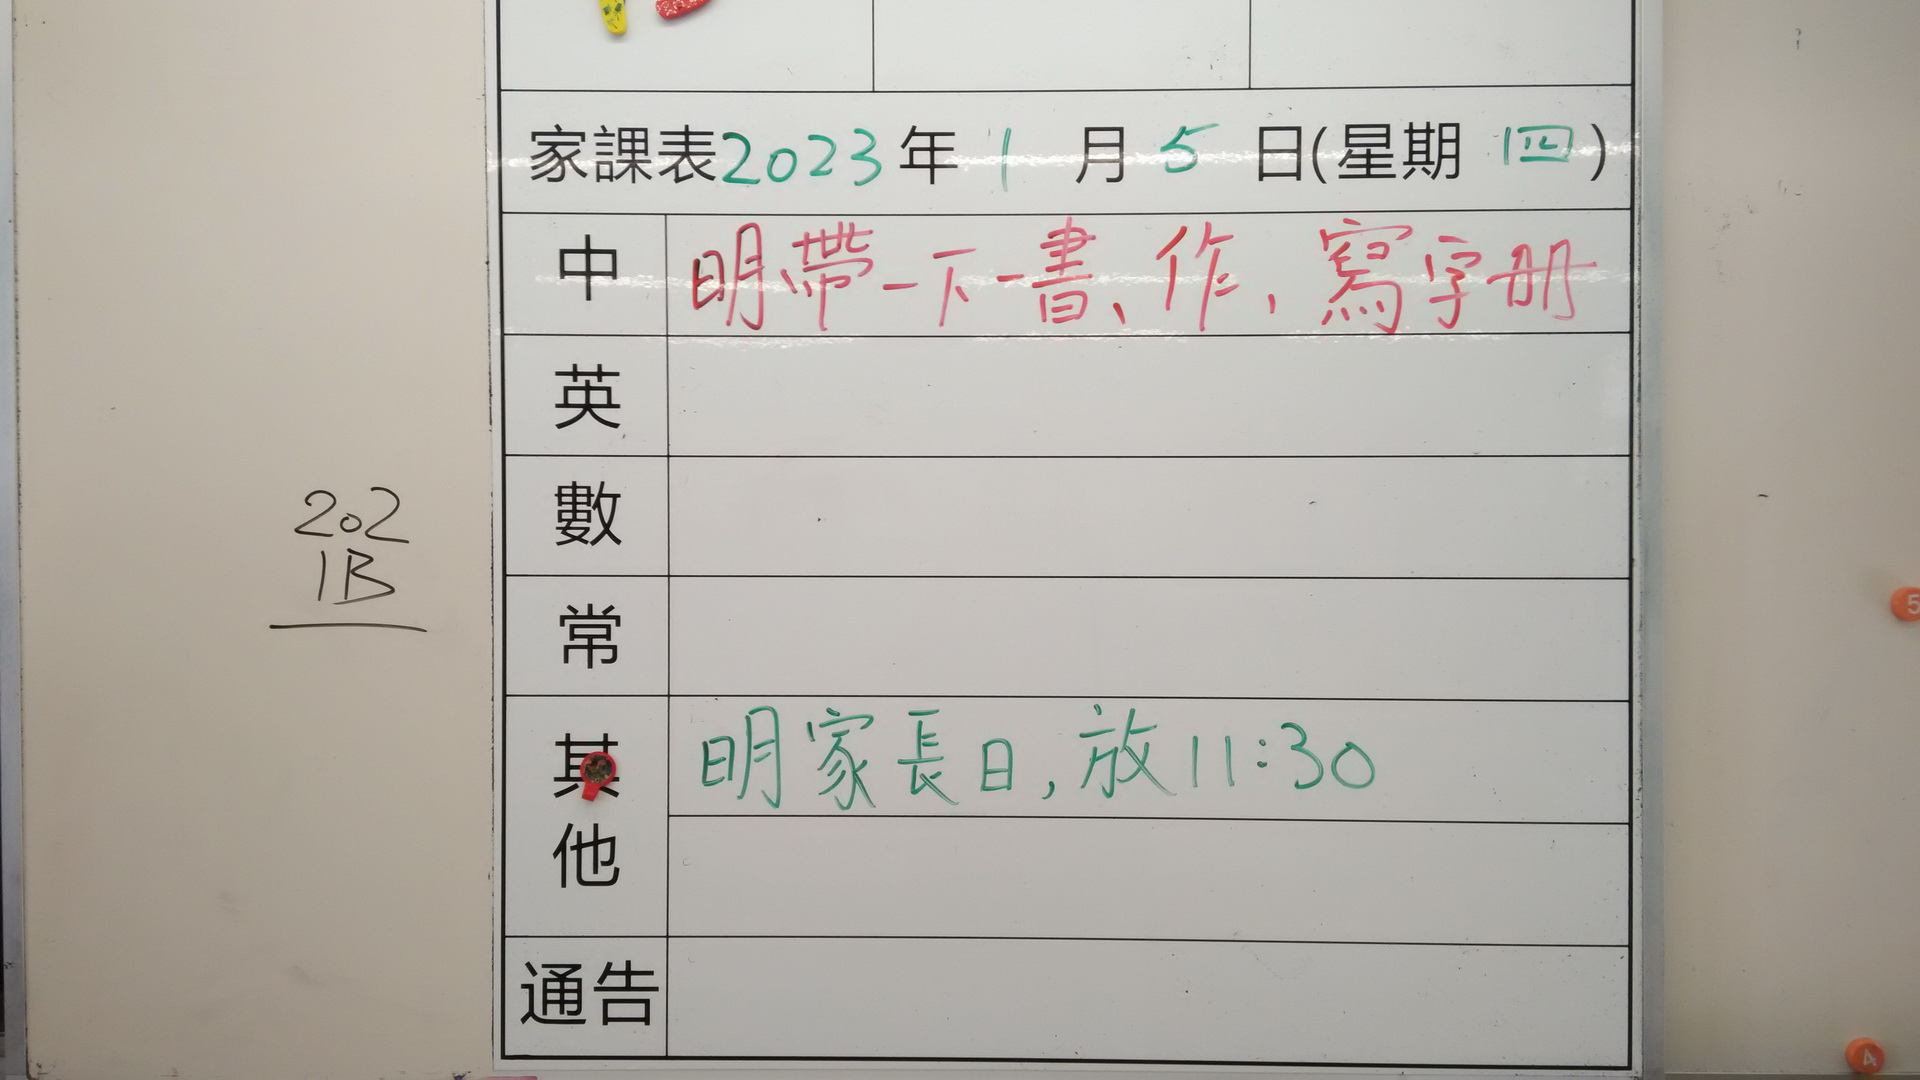 家課表2023年1月5日(星期四)
中 明帶一下一書、作，寫字册
英
數
常
其他 明家長日，放11:30
通告
202
1B
5
4